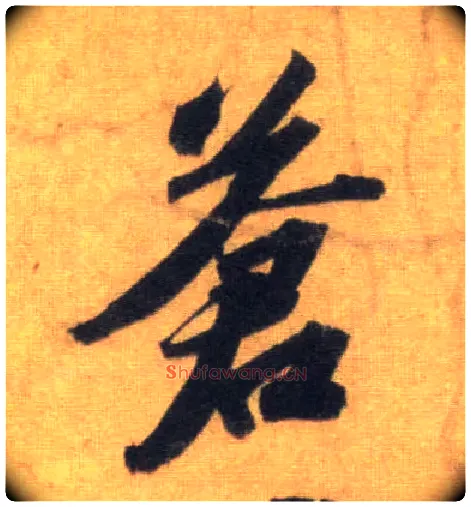 蒼
Shufawang.CN